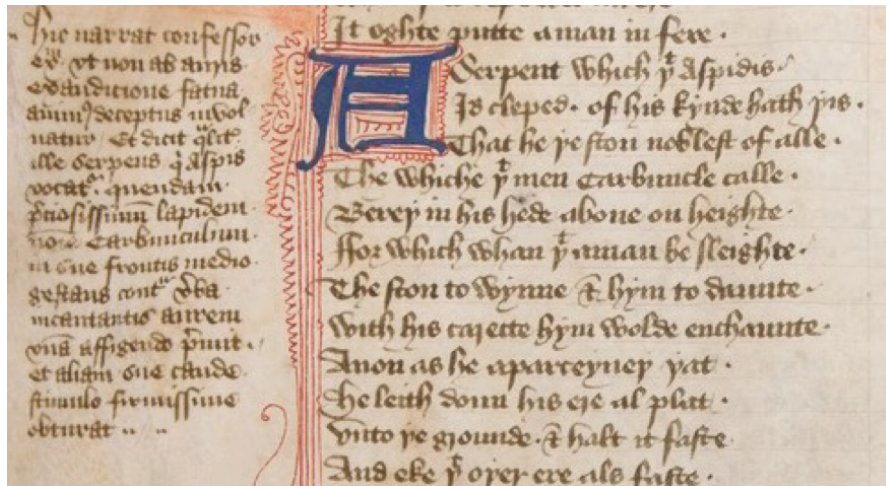 hic narrat confessor
exᵐ vt non ab auris
exauditione fatua
animꝰ deceptus inuol
uatur. Et dicit qͣlitˀ
ille serpens q̍ Aspis
vocatᵘʳ. quendam
p̄ciosissimū lapidem
noīe Carbunculum.
in sue frontis medio
gestans contᵃ v̄ba
incantantis aurem
vnā affigendo p̄mit.
et aliam sue caude
stimulo firmissime
obturat ..
It oghte putte aman in fere.
A Serpent which þᵗ Aspidis.
Is cleped. of his kynde hath þis.
That he þe ston noblest of alle.
The whiche þᵗ men Carbuncle calle.
Bereþ in his hede aboue on heighte.
ffor which whan þᵗ aman be sleighte.
The ston to wynne & hym to daunte.
With his carecte hym wolde enchaunte.
Anon as he aparceyueþ þat.
he leith doun his ere al plat.
vnto þe grounde. & halt it faste
And eke þᵗ oþer ere als faste.